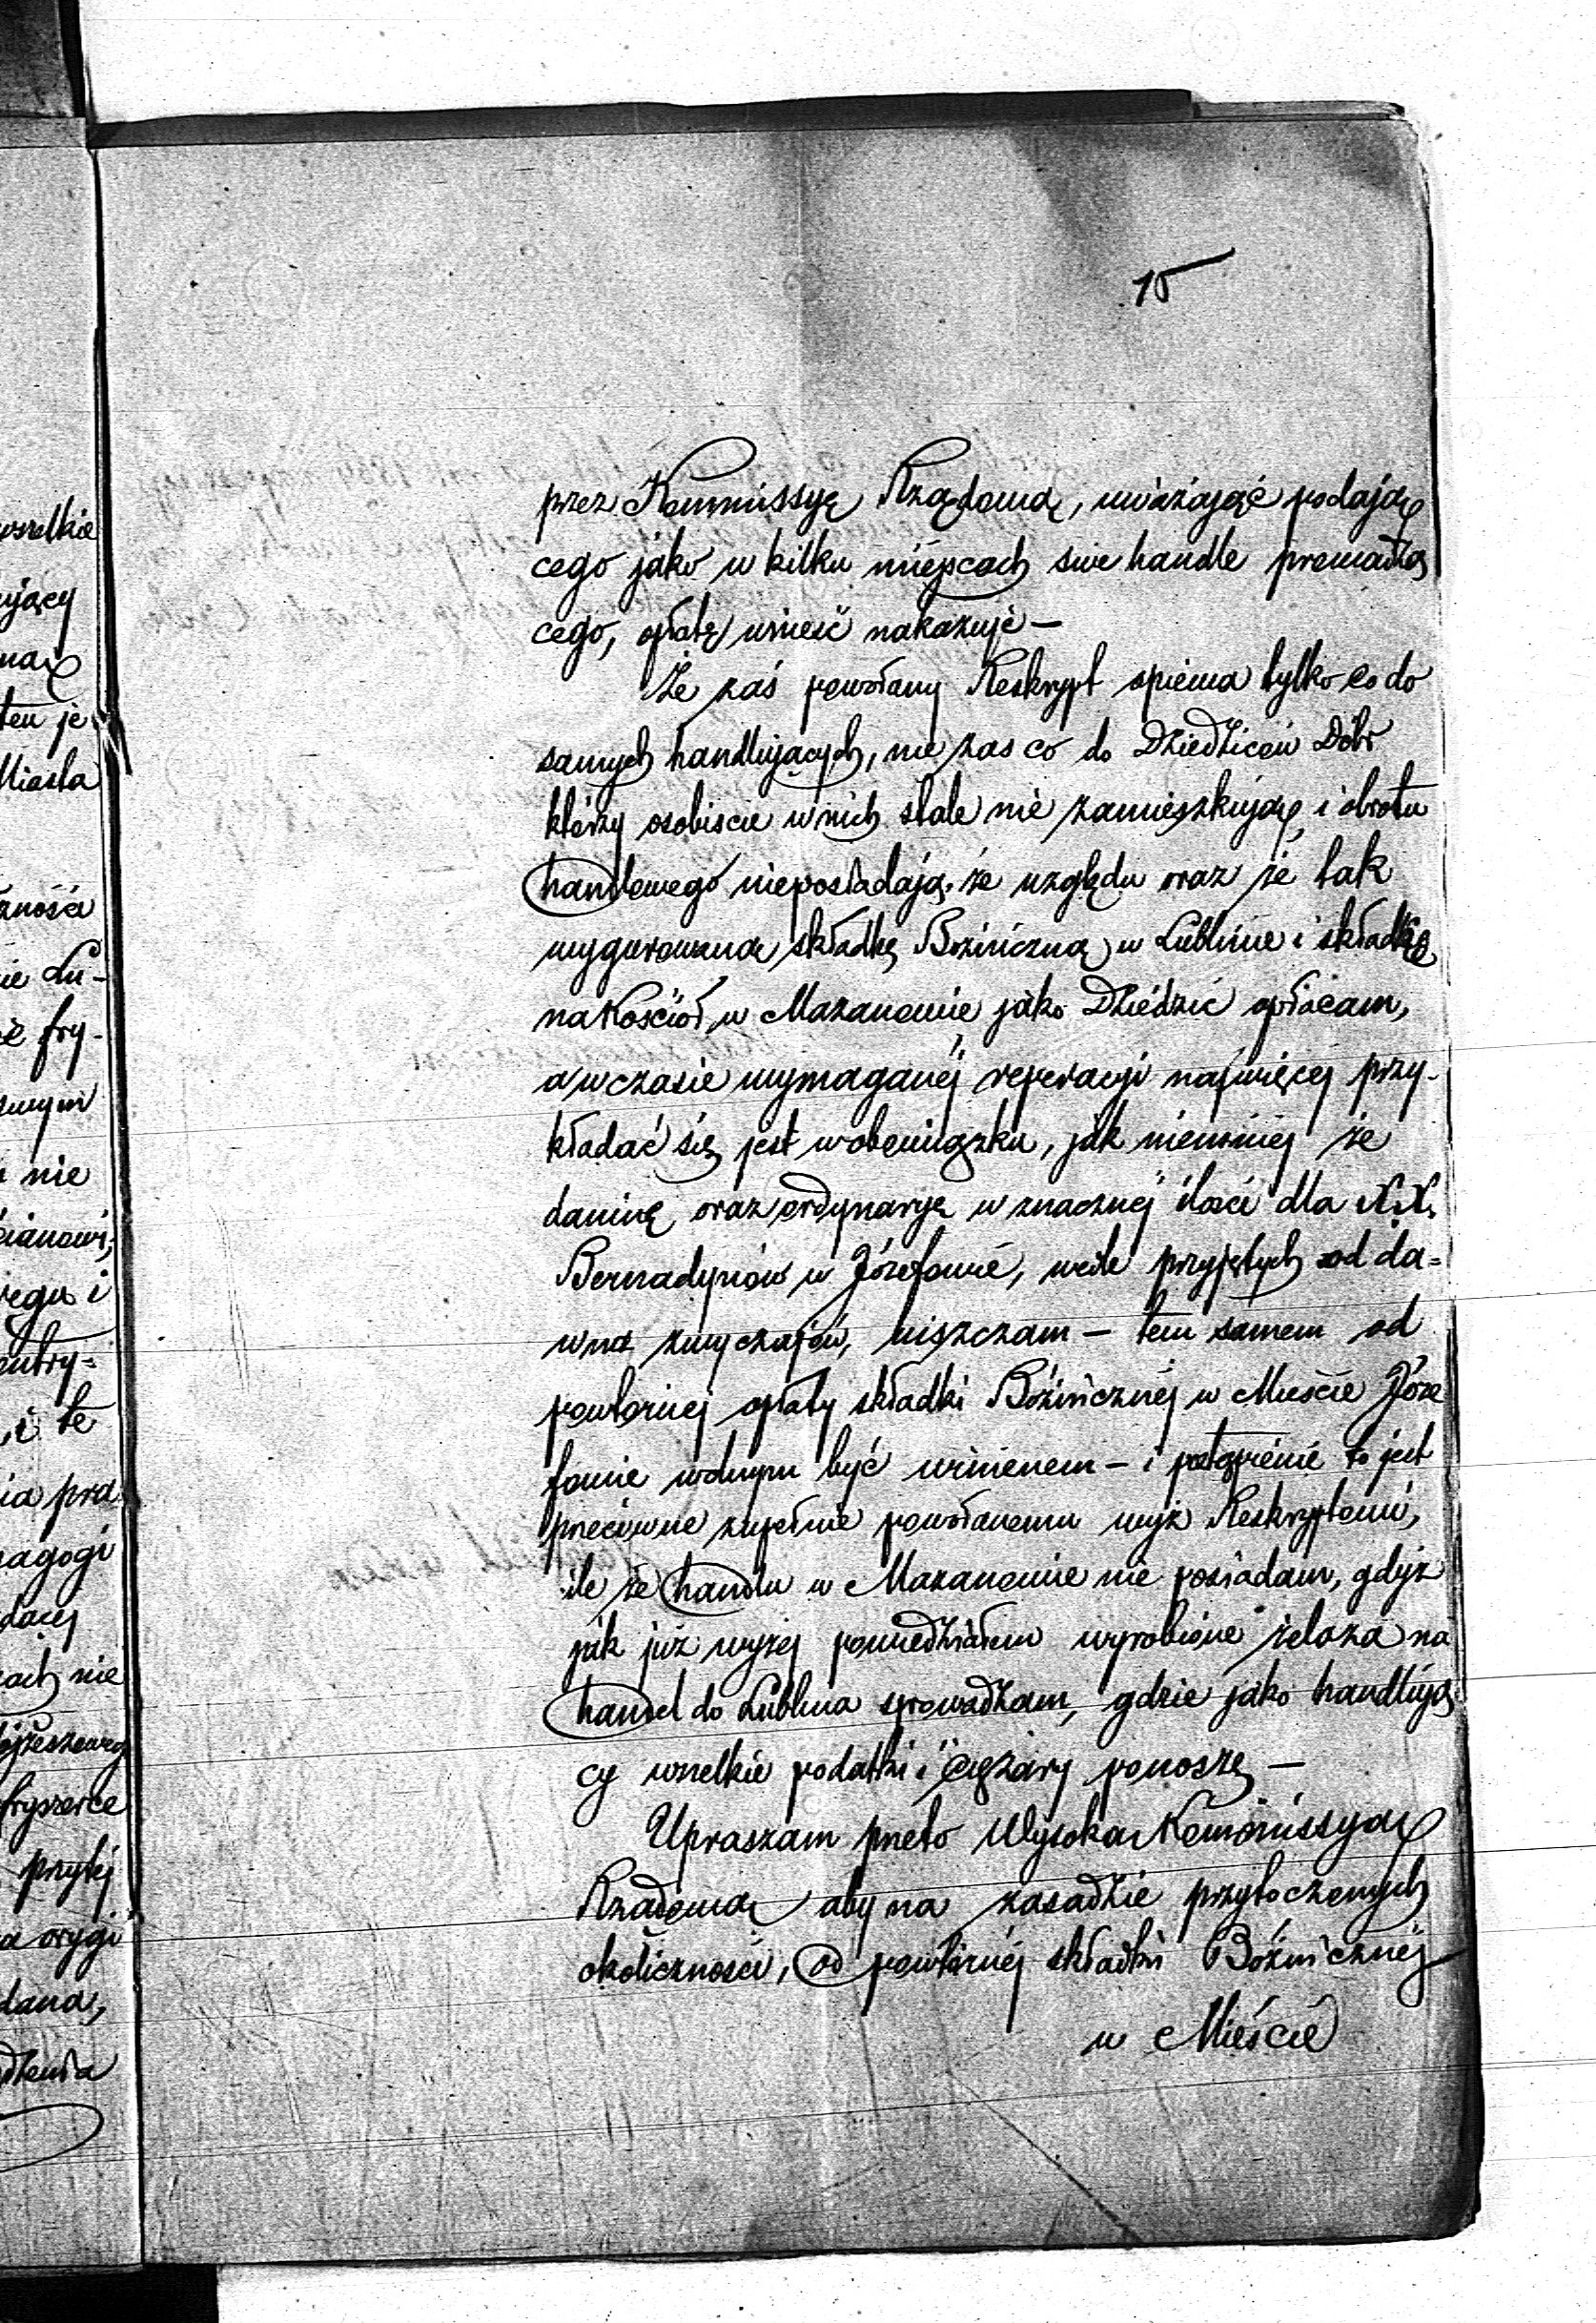 15
przez Kommissyę Rządową, uważając podają
cego jako w kilku miejscach swe handle prowadzą
cego, opłatę wnieść nakazuje —
Że zaś powołany Reskrypt opiewa tylko co do
samych handlujących, nie zas co do Dziedziców Dóbr
którzy osobiscie w nich stale nie zamieszkują i obrotu
handlowego nieposiadają, ze względu oraz że tak
wygurowaną składkę Bożniczną w Lublinie i składkę
na Kościoł w Mazanowie jako Dziedzic opłacam,
a w czasie wymaganéj reperacyi najwięcej przy-
kładać się jest w obowiązku, jak niemniéj że
daninę oraz ordynaryę w znacznéj ilości dla XX.
Bernadynów w Józefowie, wedle przyjętych od da=
wna zwyczajów, uiszczam — tem samem od
powtornej opłaty składki Bóżnicznéj w Mieście Józe
fowie wolnym być winienem — i
przeciwne zupełnie powołanemu wyż Reskryptowi,
ile że handlu w Mazanowie nie posiadam, gdyż
jak już wyżej powiedziałem wyrobione żelaza na
handel do Lublina sprowadzam, gdzie jako handlują
cy wszelkie podatki i ciężary ponoszę —
Upraszam przeto Wysoką Kommissyą
Rządową aby na zasadzie przytoczonych
okoliczności, od powtórnéj składki Bóżnicznéj
w Mieście
wszelkie
ujący
ną
ten je
Miasta
zności
ie Lu-
ie fry-
swym
nie
cianowi,
ięga i
entry=
, i te
ia pra
nagogi
dącej
ach nie
fryszerce
przytéj
a orygi
dana,